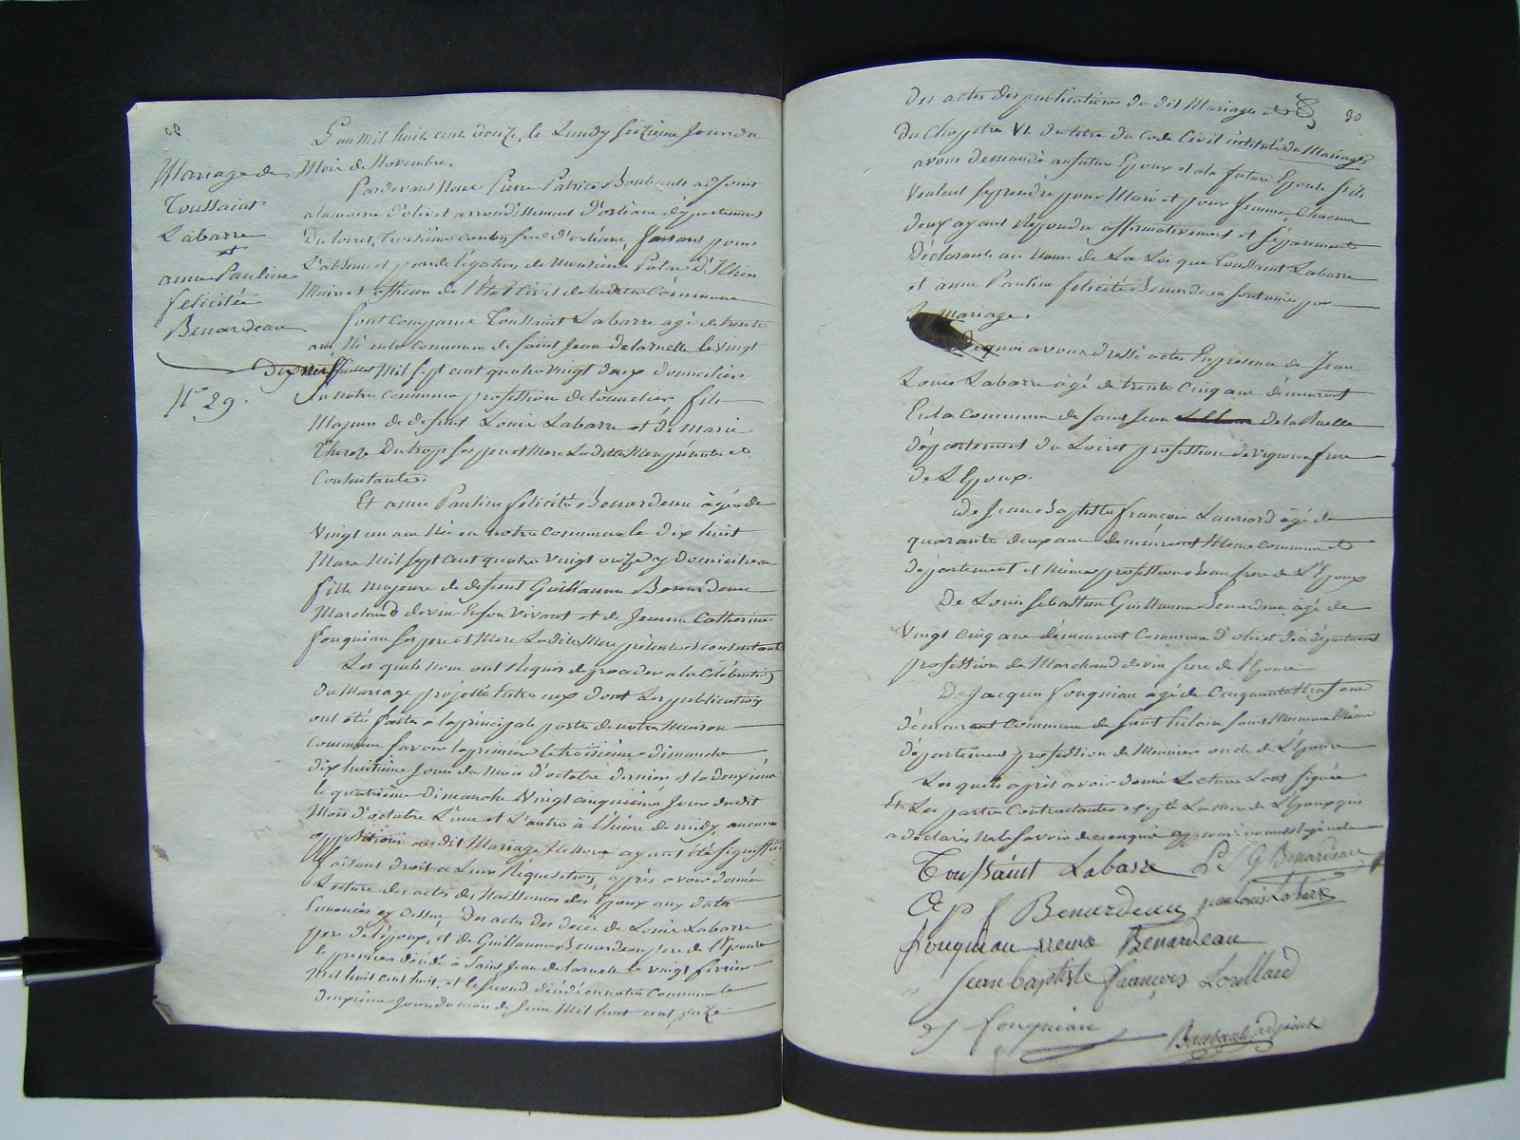 Mariage de
Toussaint
Labarre
et
anne Pauline
felicitée
Benardeau
N° 29.
L'an mil huit cent douze, le Lundy seizieme Jour du
Mois de Novembre.
Pardevant Nous Pierre Patrice Boubault adjoint
a la mairie d'olivet arrondissement d'orleans département
Du loiret, troisieme canton Sud d'orleans, faisant pour
L'absence et par délégation de Monsieur
Maire et officier de l'Etat Civil de laditte Commune
Sont comparus Toussaint Labarre agé de trente
ans Né en la commune de Saint Jean de la ruelle le vingt
Dix neuf Mil sept cent quatre vingt deux domicilié
en notre commune profession de tonnelier fils
Majeur de defunt Louis Labarre et de Marie
Thereze ses pere et Mere La ditte Mere présente et
Contentante.
Et anne Pauline felicité Benardeau âgée de
vingt un ans Née en notre commune le dix huit
Mars Mil sept cent quatre vingt onze y domiciliée
fille majeure de defunt Guillaume Benardeau
Marchand de vin de son vivant et de Jeanne Catherine
fouquiau ses pere et Mere La ditte Mere présente et contentante
Les quels nous ont Requis de proceder a la Célébration
Du Mariage projetté Entre eux dont Les publications
ont été faites a la principale porte de notre Maison
commune savoir la premiere le troisième dimanche
dix huitieme Jour du Mois d'octobre dernier et la deuxième
le quatrième dimanche Vingt cinquième Jour dudit
Mois d'octobre L'une et L'autre à l'heure de midy, aucune
opposition au dit Mariage ne Nous ayant été signiffiée
faisant droit a Leur Requisition, après avoir donné
Lecture des actes de Naissance des Epoux aux dates
Enoncés cy dessus, Des actes des décès de Louis Labarre
pere de l'époux, et de Guillaume Benardeau pere de l'Epouse
le premier décédé à Saint Jean de la ruelle le vingt fevrier
mil huit cent huit, et le second décédé en notre Commune le
deuxième Jour du mois de Juin Mil huit cent onze
20
Des actes des publications du dit Mariage et
Du Chapitre VI. du titre du Code Civil intitulé du Mariage
avons demandé au futur Epoux et a la future Epouse s'ils
veulent se prendre pour Mari et pour femme, Chacun
deux ayant répondu affirmativement et séparément
Déclarons au Nom de La Loi que Toussaint Labarre
et anne Pauline felicité Benardeau sont unis par
le mariage.
De quoi avons dressé acte En presence de Jean
Louis Labarre âgé de trente Cinq ans démeurant
En la commune de Saint Jean de la Ruelle
département du Loiret profession de vigneron frere
de L'Epoux.
De Jean Baptiste françois Lauriard âgé de
quarante deux ans demeurant Meme commune et
département et même profession beau frere de L'Epoux
De Louis Sebastien Guillaume Benardeau âgé de
vingt cinq ans démeurant Commune d'olivet département
profession de Marchand de vin frere de l'Epouse
De Jacques fouquiau agé de Cinquante
démeurant commune de Saint hilaire Saint Mesmin Même
département profession de Meunier oncle de L'Epouse
Les quels après avoir donné Lecture L'ont signée
Et Les parties Contractantes excepté La Mere de L'Epoux qui
a déclaré Ne le savoir de ce enquis
Toussaint Labare L S G Benardeau
A p f Benardeau jean Louis Labare
fouquiau veuve Benardeau
Jean baptiste françois Lorillard
J fouquiau Boubault adjoint